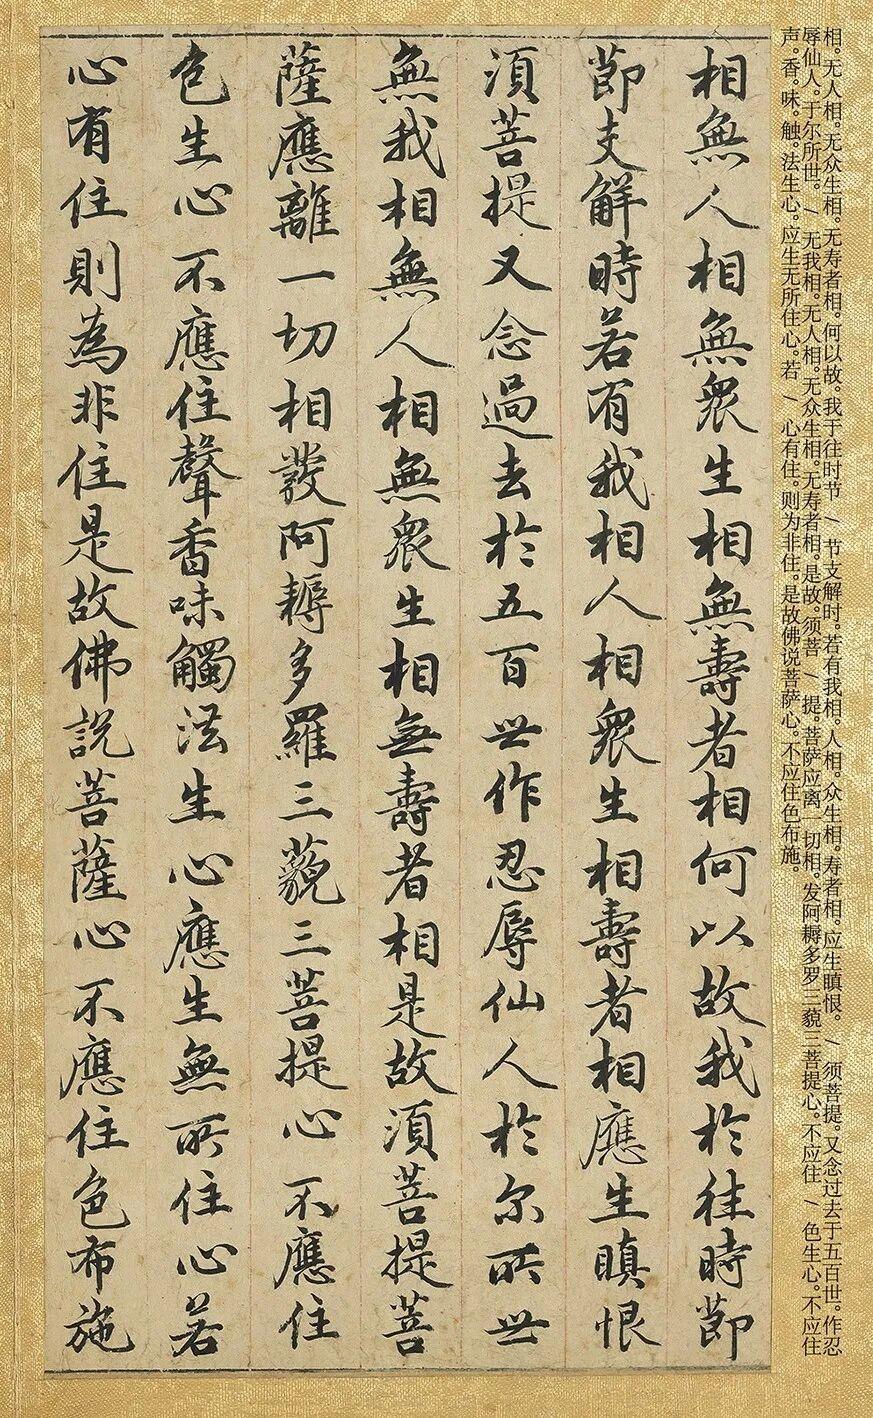 相。无人相。无众生相。无寿者相。何以故。我于往时节 / 节支解时。若有我相。人相。众生相。寿者相。应生瞋恨。 / 须菩提。又念过去于五百世。作忍
辱仙人。于尔所世。 / 无我相。无人相。无众生相。无寿者相。是故。须菩 / 提。菩萨应离一切相。发阿耨多罗三藐三菩提心。不应住 / 色生心。不应住
声。香。味。触。法生心。应生无所住心。若 / 心有住。则为非住。是故佛说菩萨心。不应住色布施。
相無人相無眾生相無壽者相何以故我於往時節
節支解時若有我相人相眾生相壽者相應生瞋恨
須菩提又念過去於五百世作忍辱仙人於尔所世
無我相無人相無眾生相無壽者相是故須菩提菩
薩應離一切相發阿耨多羅三藐三菩提心不應住
色生心不應住聲香味觸法生心應生無所住心若
心有住則為非住是故佛說菩薩心不應住色布施